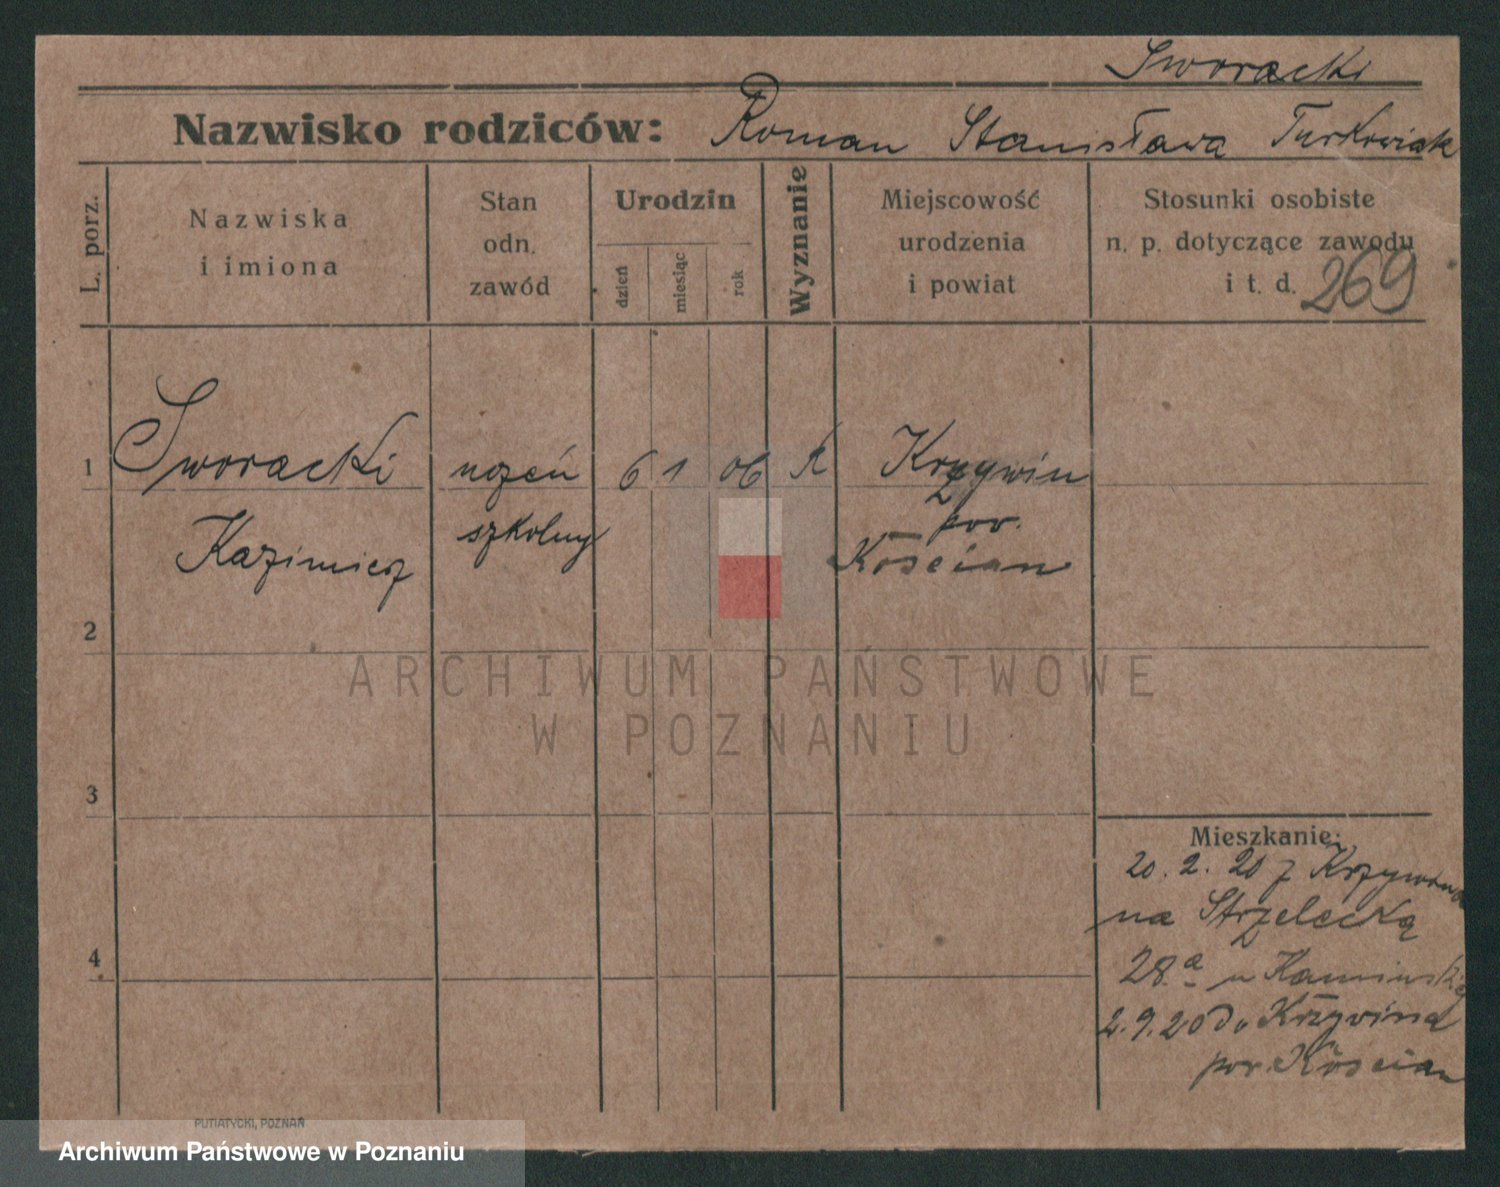 Sworacki
Nazwisko rodziców: Roman Stanisława Turkowiak
L. porz.
Nazwiska
i imiona
Stan
odn.
zawód
Urodzin
dzień
miesiąc
rok
Wyznanie
Miejscowość
urodzenia
i powiat
Stosunki osobiste
n. p. dotyczące zawodu
i t. d.
269
1 Sworacki uczeń 6 1 06 K Krzywin
Kazimierz szkolny pow.
Kościan
2
3
4
Mieszkanie:
20.2.20 z Krzywina
na Strzelecką
28.a u Kamińskiej
2.9.20 do Krzywina
pow. Kościan
PUTIATYCKI, POZNAŃ
ARCHIWUM PAŃSTWOWE
W POZNANIU
Archiwum Państwowe w Poznaniu